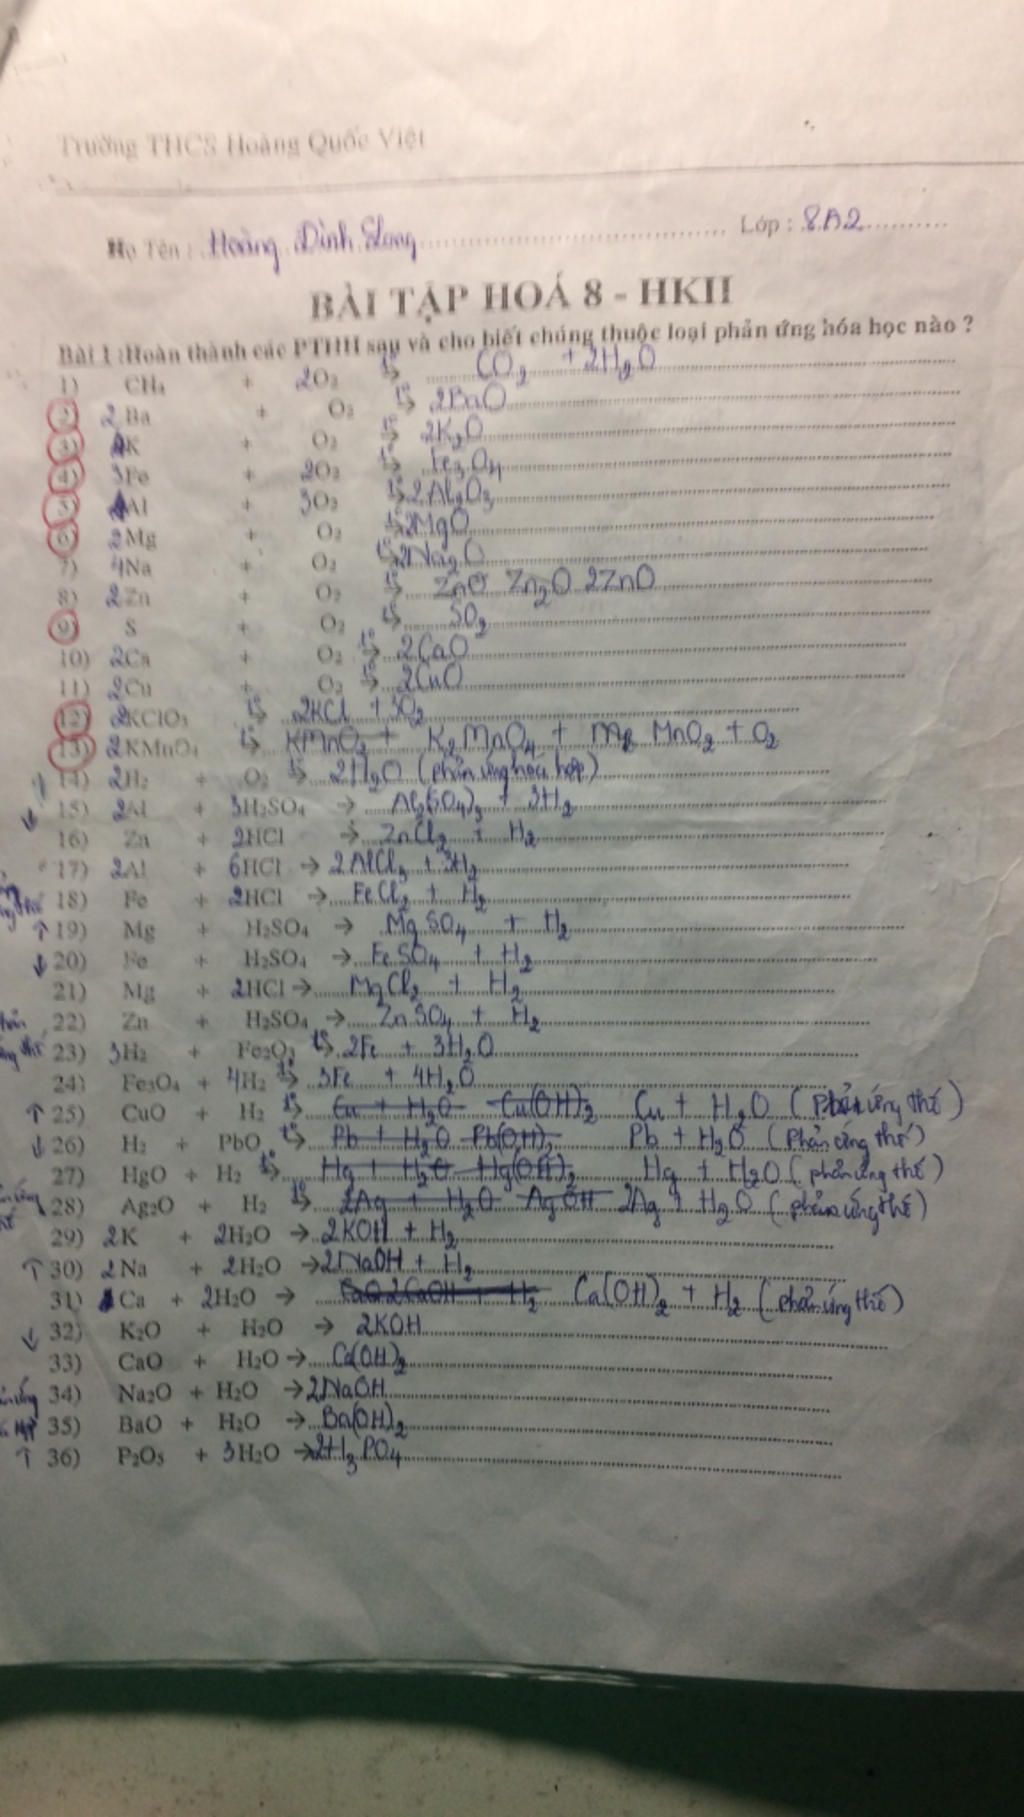 Trường THCS Hoàng Quốc Việt
Họ Tên : Hoàng Đình Long Lớp : 8A2
BÀI TẬP HOÁ 8 - HKII
Bài 1 :Hoàn thành các PTHH sau và cho biết chúng thuộc loại phản ứng hóa học nào ?
1) CH₄ + 2O₂ t° → CO₂ + 2H₂O
2) 2Ba + O₂ t° → 2BaO
3) 4K + O₂ t° → 2K₂O
4) 3Fe + 2O₂ t° → Fe₃O₄
5) 4Al + 3O₂ t° → 2Al₂O₃
6) 2Mg + O₂ t° → 2MgO
7) 4Na + O₂ t° → 2Na₂O
8) 2Zn + O₂ t° → ZnO Zn₂O 2ZnO
9) S + O₂ t° → SO₂
10) 2Ca + O₂ t° → 2CaO
11) 2Cu + O₂ t° → 2CuO
12) 2KClO₃ t° → 2KCl + 3O₂
13) 2KMnO₄ t° → KMnO₂ + K₂MnO₄ + MnO₂ + O₂
14) 2H₂ + O₂ t° → 2H₂O (phản ứng hóa hợp)
15) 2Al + 3H₂SO₄ → Al₂(SO₄)₃ + 3H₂
16) Zn + 2HCl → ZnCl₂ + H₂
17) 2Al + 6HCl → 2AlCl₃ + 3H₂
18) Fe + 2HCl → FeCl₂ + H₂
↑ 19) Mg + H₂SO₄ → MgSO₄ + H₂
↓ 20) Fe + H₂SO₄ → FeSO₄ + H₂
21) Mg + 2HCl → MgCl₂ + H₂
22) Zn + H₂SO₄ → ZnSO₄ + H₂
23) 3H₂ + Fe₂O₃ t° → 2Fe + 3H₂O
24) Fe₃O₄ + 4H₂ t° → 3Fe + 4H₂O
↑ 25) CuO + H₂ t° → Cu + H₂O Cu(OH)₂ Cu + H₂O (Phản ứng thế)
↓ 26) H₂ + PbO t° → Pb + H₂O Pb(OH)₂ Pb + H₂O (Phản ứng thế)
27) HgO + H₂ t° → Hg + H₂O Hg(OH)₂ Hg + H₂O (phản ứng thế)
28) Ag₂O + H₂ t° → 2Ag + H₂O AgOH 2Ag + H₂O (phản ứng thế)
29) 2K + 2H₂O → 2KOH + H₂
↑ 30) 2Na + 2H₂O → 2NaOH + H₂
31) Ca + 2H₂O → 2CaOH + H₂ Ca(OH)₂ + H₂ (phản ứng thế)
↓ 32) K₂O + H₂O → 2KOH
33) CaO + H₂O → Ca(OH)₂
34) Na₂O + H₂O → 2NaOH
35) BaO + H₂O → Ba(OH)₂
↑ 36) P₂O₅ + 3H₂O → 2H₃PO₄